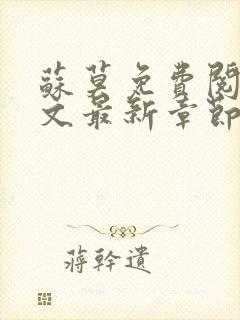 蘇莫免費閱
文最新章節
蔣幹遺